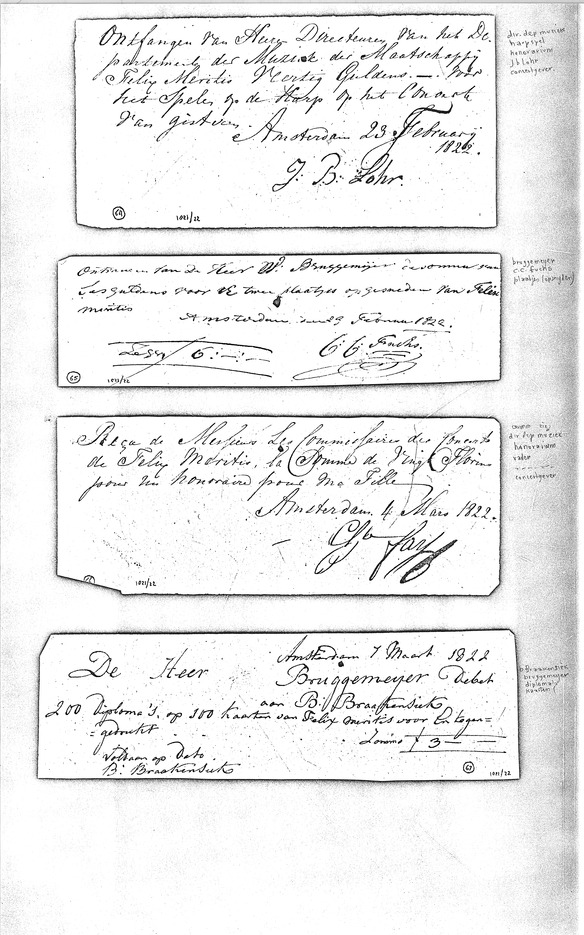 Ontfangen van Heeren Directeuren van het De-
partement der Muziek der Maatschappij
Felix Meritis Veertig Guldens. — Voor
het Speelen op de Harp op het Concert
van gisteren.
Amsterdam 23 February
1822.
J: B: Lohr.
64
1021/22
dir. dep muziek
harpspel
honorarium
J b Lohr
concertgever
Ontvangen van de Heer W: Bruggemeijer de somma van
Ses guldens voor twee plaatjes op gesneden van Felix
meritis
Amsterdam 23 Februari 1822.
Zegge 6:—:—
C: C: Fuchs.
65
1021/22
bruggemeijer
c.c. fuchs
plaatje (opsnijden)
Reçu de Messieurs Les Commissaires des Concerts
de Felix Meritis, la Somme de Vingt Florins
pour un honoraire pour Ma Fille
Amsterdam 4 Mars 1822.
1021/22
dir dep muziek
honorarium
vader
concertgever
Amsterdam 7 Maart 1822
De Heer Bruggemeyer Debet
aan B: Braakensiek
200 diploma's, op 100 kaarten van Felix meritis voor
gedrukt
Somma f 3—
Voldaan op dato
B: Braakensiek
67
1021/22
b Braakensiek
bruggemeyer
diploma
kaarten